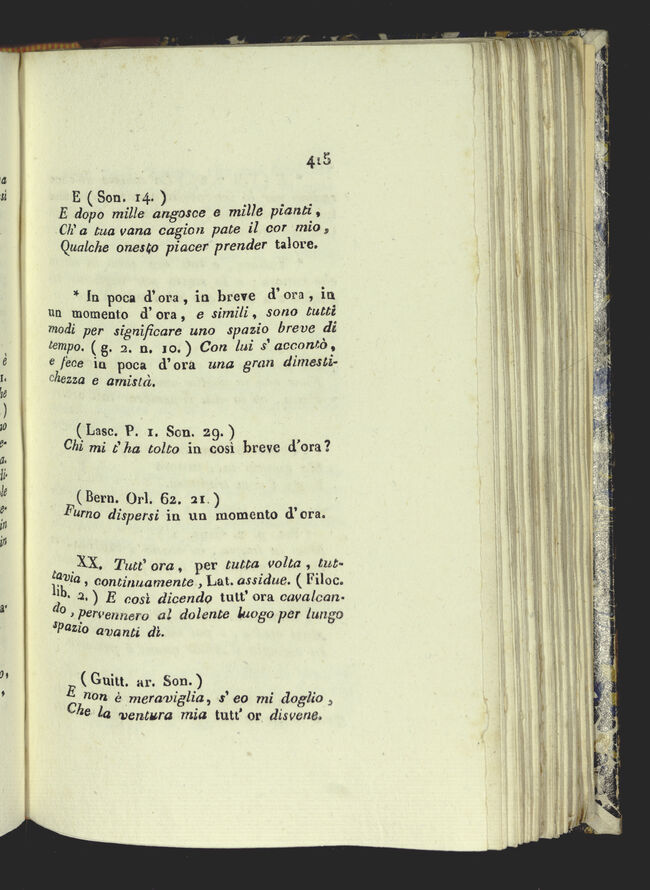 415
E ( Son. 14. )
E dopo mille angosce e mille pianti,
Ch' a tua vana cagion pate il cor mio,
Qualche onesto piacer prender talore.
* In poca d'ora, in breve d'ora, in
un momento d'ora, e simili, sono tutti
modi per significare uno spazio breve di
tempo. ( g. 2. n. 10. ) Con lui s' accontò,
e fece in poca d'ora una gran dimesti-
chezza e amistà.
( Lasc. P. 1. Son. 29. )
Chi mi t'ha tolto in così breve d'ora?
( Bern. Orl. 62. 21. )
Furno dispersi in un momento d'ora.
XX. Tutt' ora, per tutta volta, tut-
tavia, continuamente, Lat. assidue. ( Filoc.
lib. 2. ) E così dicendo tutt' ora cavalcan-
do, pervennero al dolente luogo per lungo
spazio avanti dì.
( Guitt. ar. Son. )
E non è meraviglia, s' eo mi doglio,
Che la ventura mia tutt' or disvene.